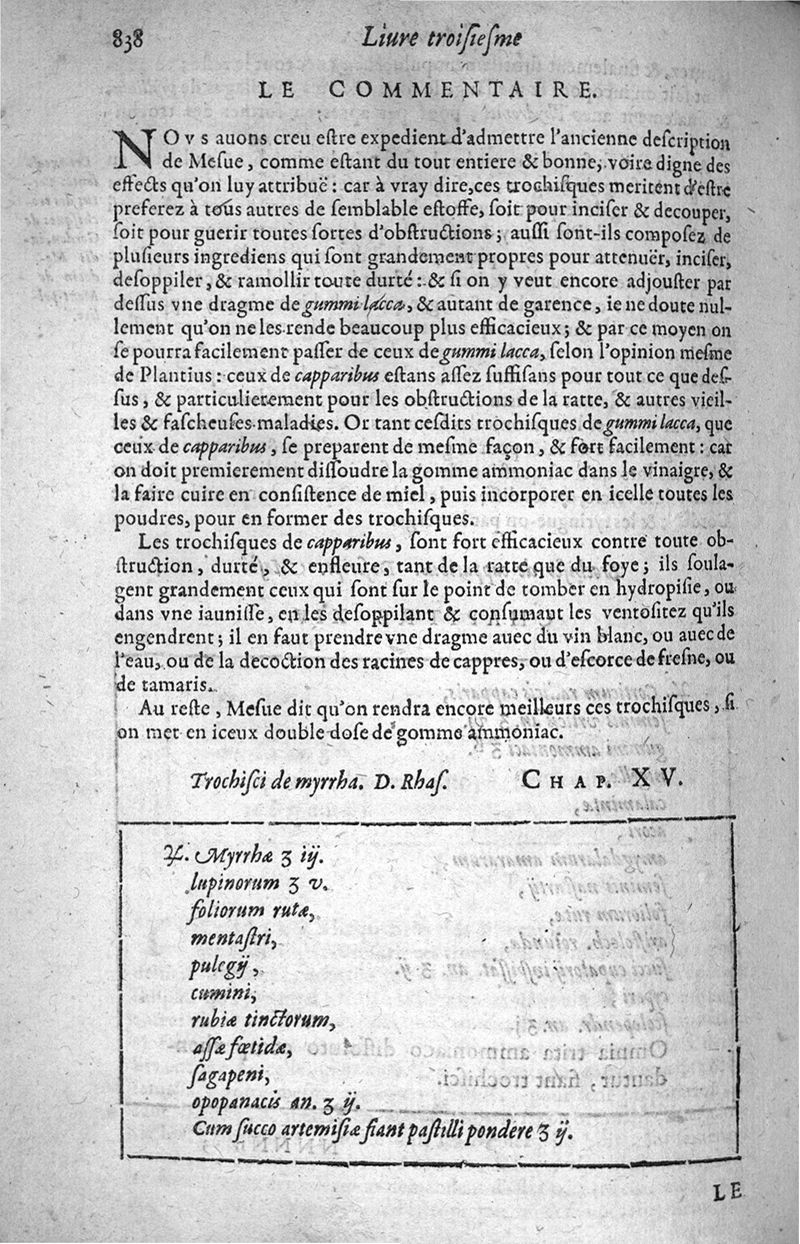 838 Liure troiſieſme
LE COMMENTAIRE.
NOvs auons creu eſtre expedient d'admettre l'ancienne deſcription
de Meſue, comme eſtant du tout entiere & bonne, voire digne des
effects qu'on luy attribuë : car à vray dire, ces trochiſques meritent d'eſtre
preferez à tous autres de ſemblable eſtoffe, ſoit pour inciſer & decouper,
ſoit pour guerir toutes ſortes d'obſtructions ; auſſi ſont-ils compoſez de
pluſieurs ingrediens qui ſont grandement propres pour attenuër, inciſer,
deſoppiler, & ramollir toute durté : & ſi on y veut encore adjouſter par
deſſus vne dragme de gummi lacca, & autant de garence, ie ne doute nul-
lement qu'on ne les rende beaucoup plus efficacieux ; & par ce moyen on
ſe pourra facilement paſſer de ceux de gummi lacca, ſelon l'opinion meſme
de Plantius : ceux de capparibus eſtans aſſez ſuffiſans pour tout ce que deſ-
ſus, & particulierement pour les obſtructions de la ratte, & autres vieil-
les & faſcheuſes maladies. Or tant ceſdits trochiſques de gummi lacca, que
ceux de capparibus, ſe preparent de meſme façon, & fort facilement : car
on doit premierement diſſoudre la gomme ammoniac dans le vinaigre, &
la faire cuire en conſiſtence de miel, puis incorporer en icelle toutes les
poudres, pour en former des trochiſques.
Les trochiſques de capparibus, ſont fort efficacieux contre toute ob-
ſtruction, durté, & enfleure, tant de la ratte que du foye ; ils ſoula-
gent grandement ceux qui ſont ſur le point de tomber en hydropiſie, ou
dans vne iauniſſe, en les deſoppilant & conſumant les ventoſitez qu'ils
engendrent ; il en faut prendre vne dragme auec du vin blanc, ou auec de
l'eau, ou de la decoction des racines de cappres, ou d'eſcorce de freſne, ou
de tamaris.
Au reſte, Meſue dit qu'on rendra encore meilleurs ces trochiſques, ſi
on met en iceux double doſe de gomme ammoniac.
Trochiſci de myrrha. D. Rhaſ. CHAP. XV.
℞. Myrrhæ ʒ iij.
lupinorum ʒ v.
foliorum rutæ,
mentaſtri,
pulegij,
cumini,
rubiæ tinctorum,
aſſæ fœtidæ,
ſagapeni,
opopanacis an. ʒ ij.
Cum ſucco artemiſiæ fiant paſtilli pondere ʒ ij.
LE